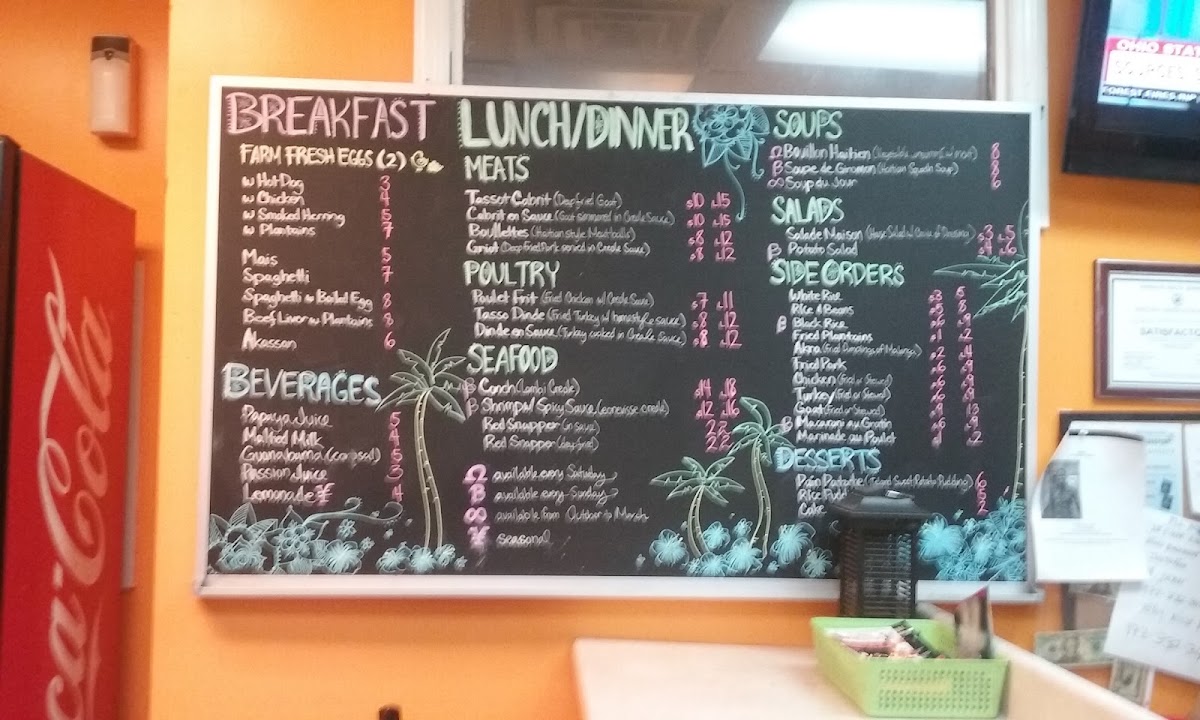 BREAKFAST
FARM FRESH EGGS (2)
w Hot Dog 3
w Chicken 4
w Smoked Herring 5
w Plantains 7
Mais 5
Spaghetti 7
Spaghetti w Boiled Egg 8
Beef Liver w Plantains 8
Akassan 6
BEVERAGES
Papaya Juice 5
Malted Milk 4
Guanabana (corosol) 5
Passion Juice 3
Lemonade 4
LUNCH/DINNER
MEATS
Tassot Cabrit (Deep fried Goat) s10 L15
Cabrit en Sauce (Goat simmered in Creole Sauce) s10 L15
Boullettes (Haitian style Meatballs) s8 L12
Griot (Deep Fried Pork served in Creole Sauce) s8 L12
POULTRY
Poulet Frit (Fried Chicken w/ Creole Sauce) s7 L11
Tasso Dinde (Fried Turkey w/ homestyle sauce) s8 L12
Dinde en Sauce (Turkey cooked in Creole Sauce) s8 L12
SEAFOOD
B Conch (Lambi Creole) s14 L18
B Shrimp w/ Spicy Sauce s12 L16
Red Snapper (in sauce) 22
Red Snapper (deep fried) 22
Ω available every Saturday
B available every Sunday
∞ available from October to March
seasonal
SOUPS
Ω Bouillon Haitien 8
B Soupe de Giromon (Haitian Squash Soup) 8
∞ Soup du Jour 6
SALADS
Salade Maison (House Salad w/ Choice of Dressing) s3 L5
B Potato Salad s4 L6
SIDE ORDERS
White Rice s3 5
Rice & Beans s5 8
B Black Rice s6 L9
Fried Plantains s1 L2
Akra (Fried Dumplings of Malanga) s2 L4
Fried Pork s6 L9
Chicken (Fried or Stewed) s6 L9
Turkey (Fried or Stewed) s6 L9
Goat (Fried or Stewed) s9 13
B Macaroni au Gratin s6 L9
Marinade au Poulet s1 L2
DESSERTS
Pain Patate (Island Sweet Potato Pudding) 6
Rice Pudd
Cake 2
Coca-Cola
OHIO STAT
SOURCES:
FOREST FIRES RIP
SATISFACTO